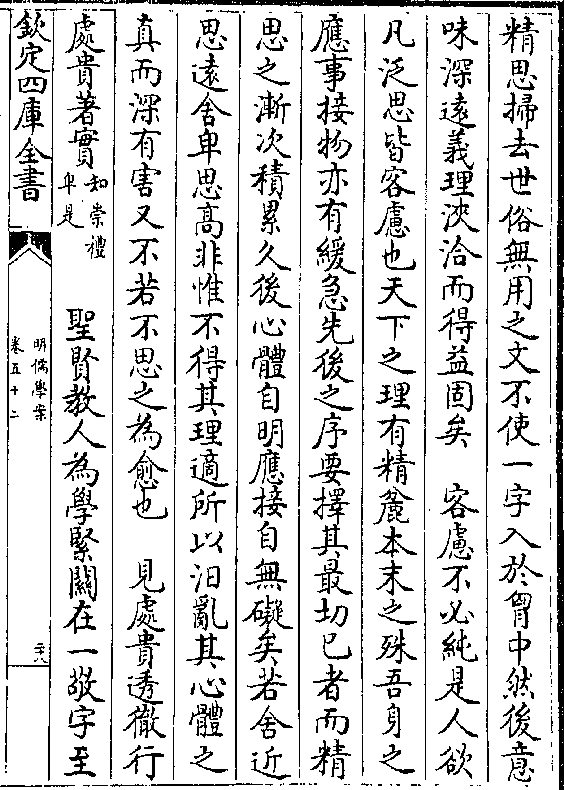 精思掃去世俗無用之文不使一字入於胷中然後意
味深遠義理浹洽而得益固矣　客慮不必純是人欲
凡泛思皆客慮也天下之理有精麄本末之殊吾身之
應事接物亦有緩急先後之序要擇其最切已者而精
思之漸次積累久後心體自明應接自無礙矣若舍近
思遠舍卑思高非惟不得其理適所以汩亂其心體之
真而深有害又不若不思之為愈也　見處貴透徹行
處貴著實知崇禮卑是　聖賢教人為學緊關在一敬字至
欽定四庫全書
明儒學案
卷五十二
二十八